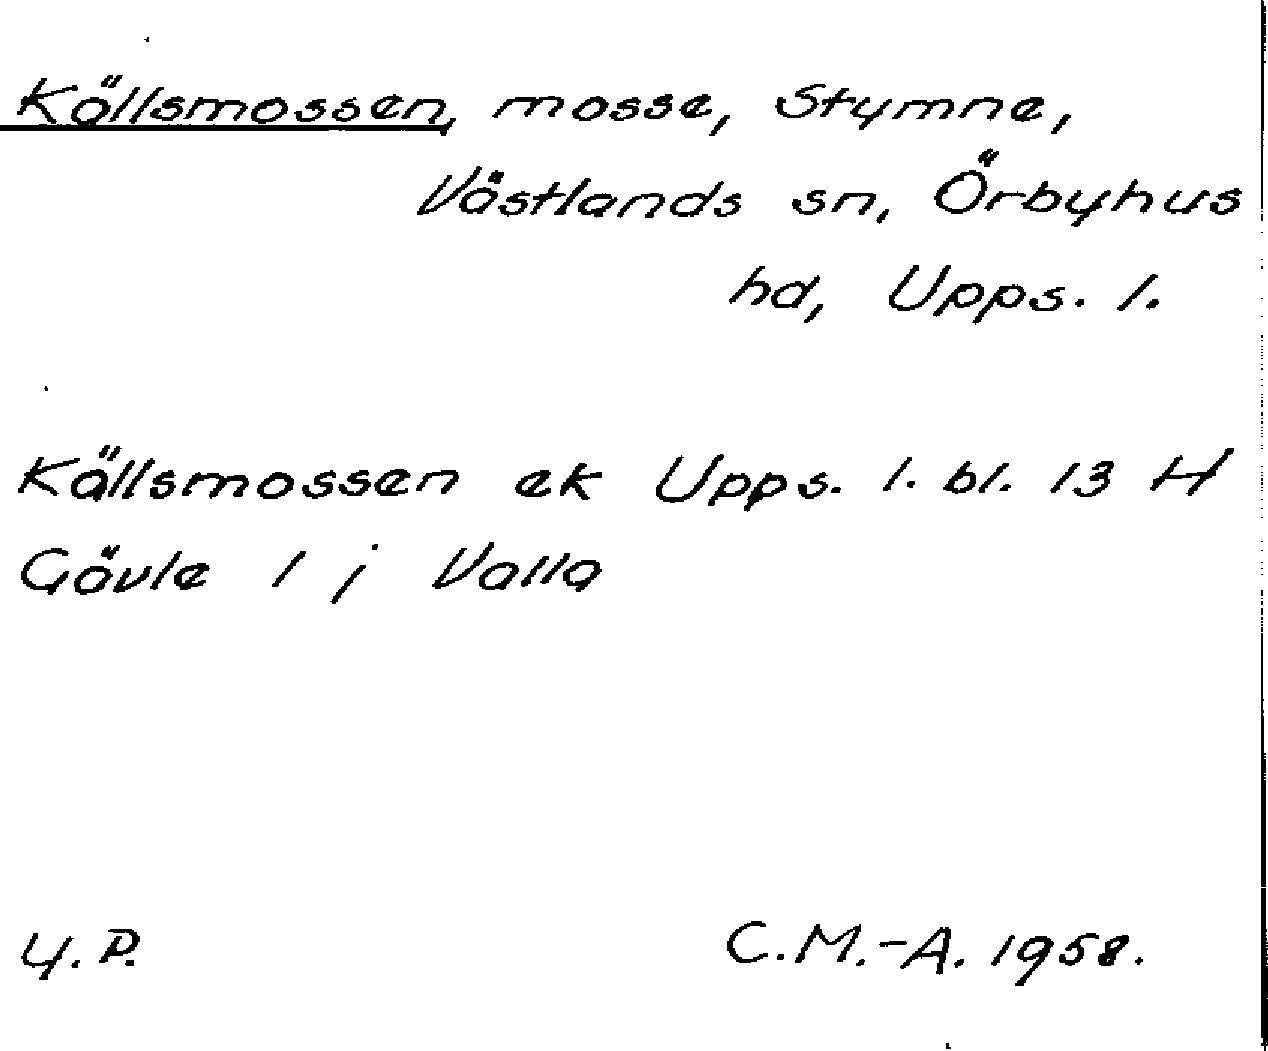 Källsmossen, mosse, Stymne,
Västlands sn, Örbyhus
hd, Upps. l.
Källsmossen ek Upps. l. bl. 13 H
Gävle 1 j Valla
Y. P.
C.M.-A. 1958.